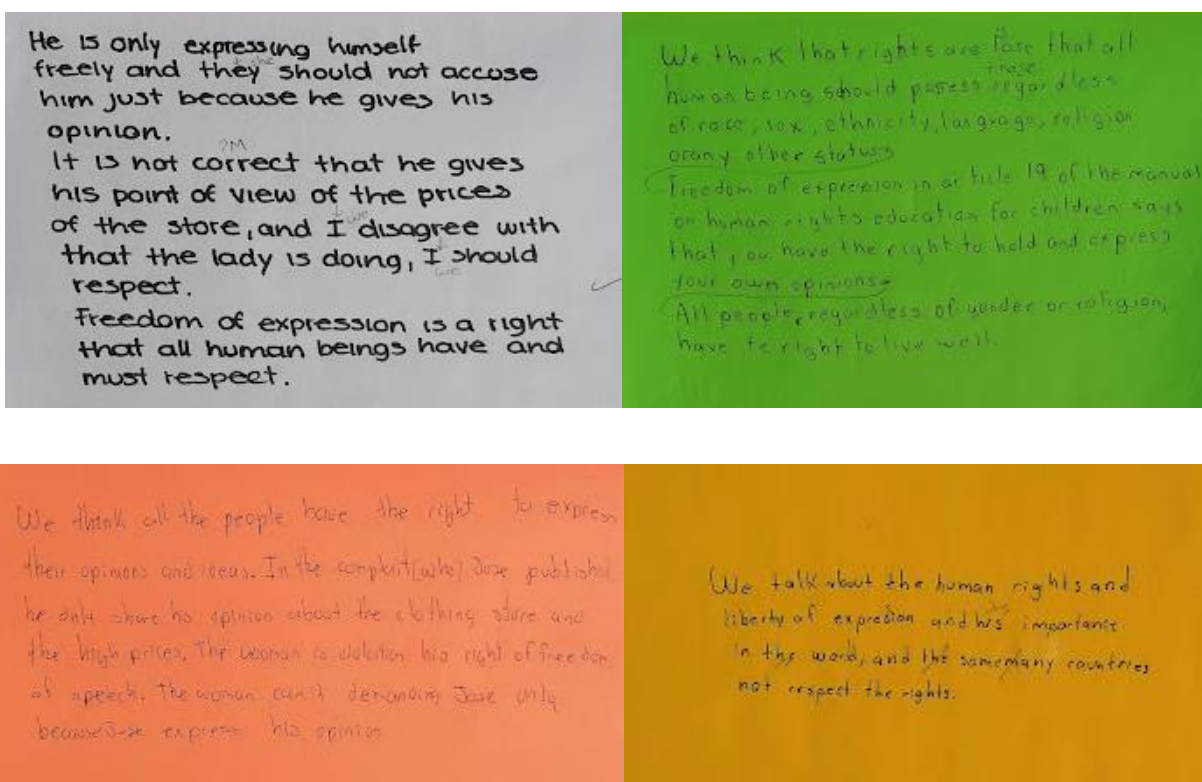 He is only expressing himself
freely and they she should not accuse
him just because he gives his
opinion.
It is not correct that he gives
his point of view of the prices
of the store, and I we disagree with
that the lady is doing, I should
we
respect.
Freedom of expression is a right
that all human beings have and
must respect.
We think that rights are that all
those
human being should posess regardless
of race, sox, ethnicity, language, religion
orany other status
Freedom of expresion in article 19 of the manual
on human rights education for children says
that you have the right to held and express
your own opinions
All people, regardless of gender or religion,
have te right to live well.
We think all the people have the right to express
their opinions and ideas. In the (who) Jose published
he only share his opinion about the clothing store and
the high prices. The woman is his right of freedom
of speech. The woman can't demanding Jose only
because Jose express his opinion
We talk about the human rights and
liberty of expresion and his importance
in the word, and the same many countries
not respect the rights.